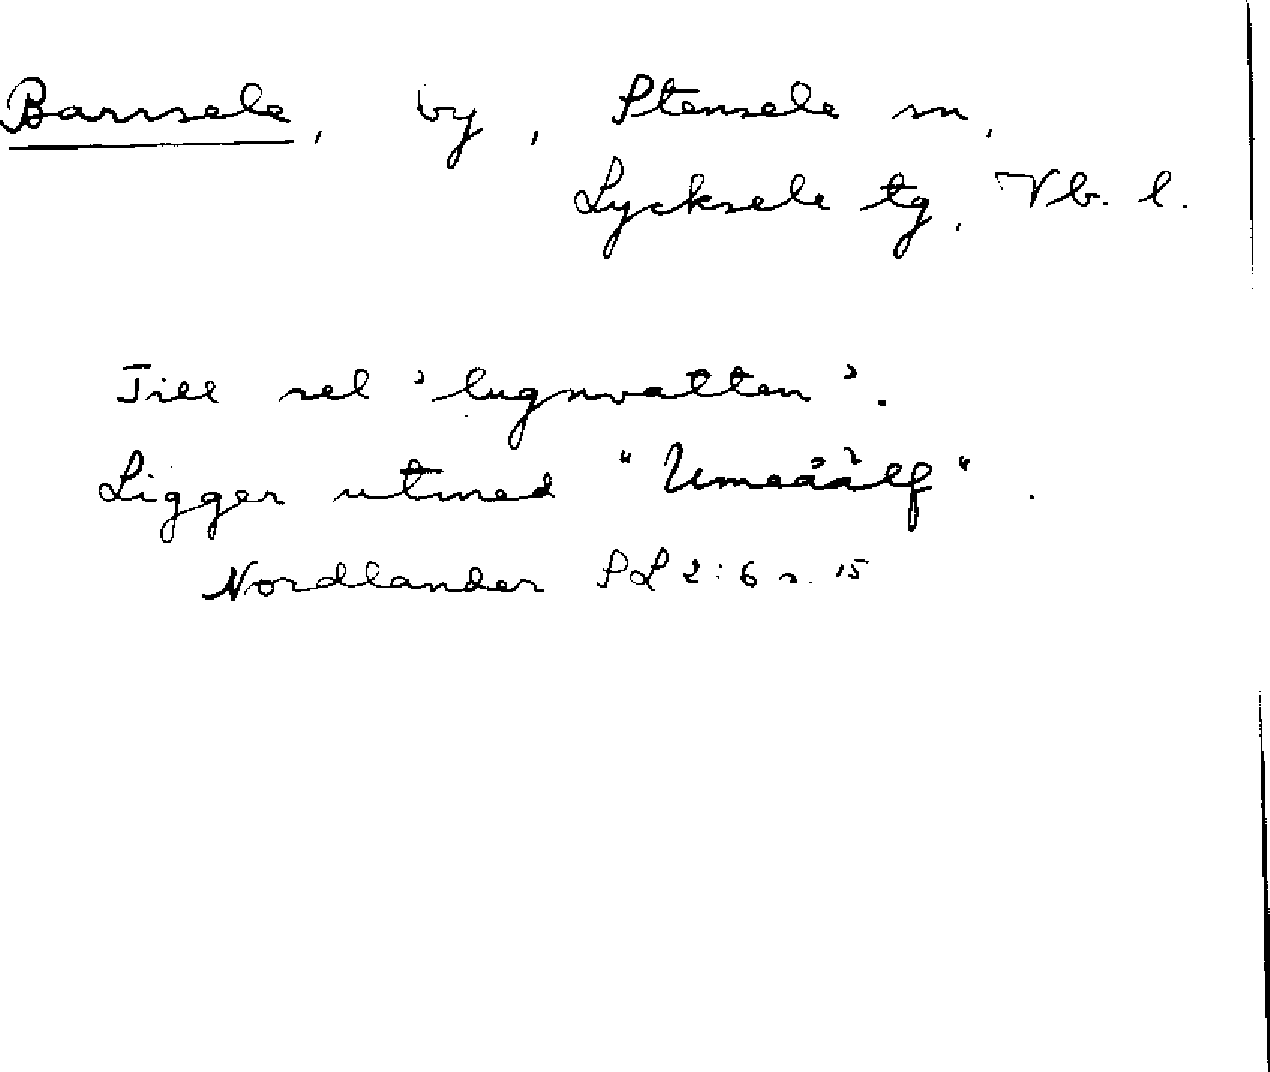 Barsele, by, Stensele sn,
Lycksele tg, Vb. l.
Till sel 'lugnvatten'.
Ligger utmed "Umeåälf".
Nordlander SL 2:6 s. 15